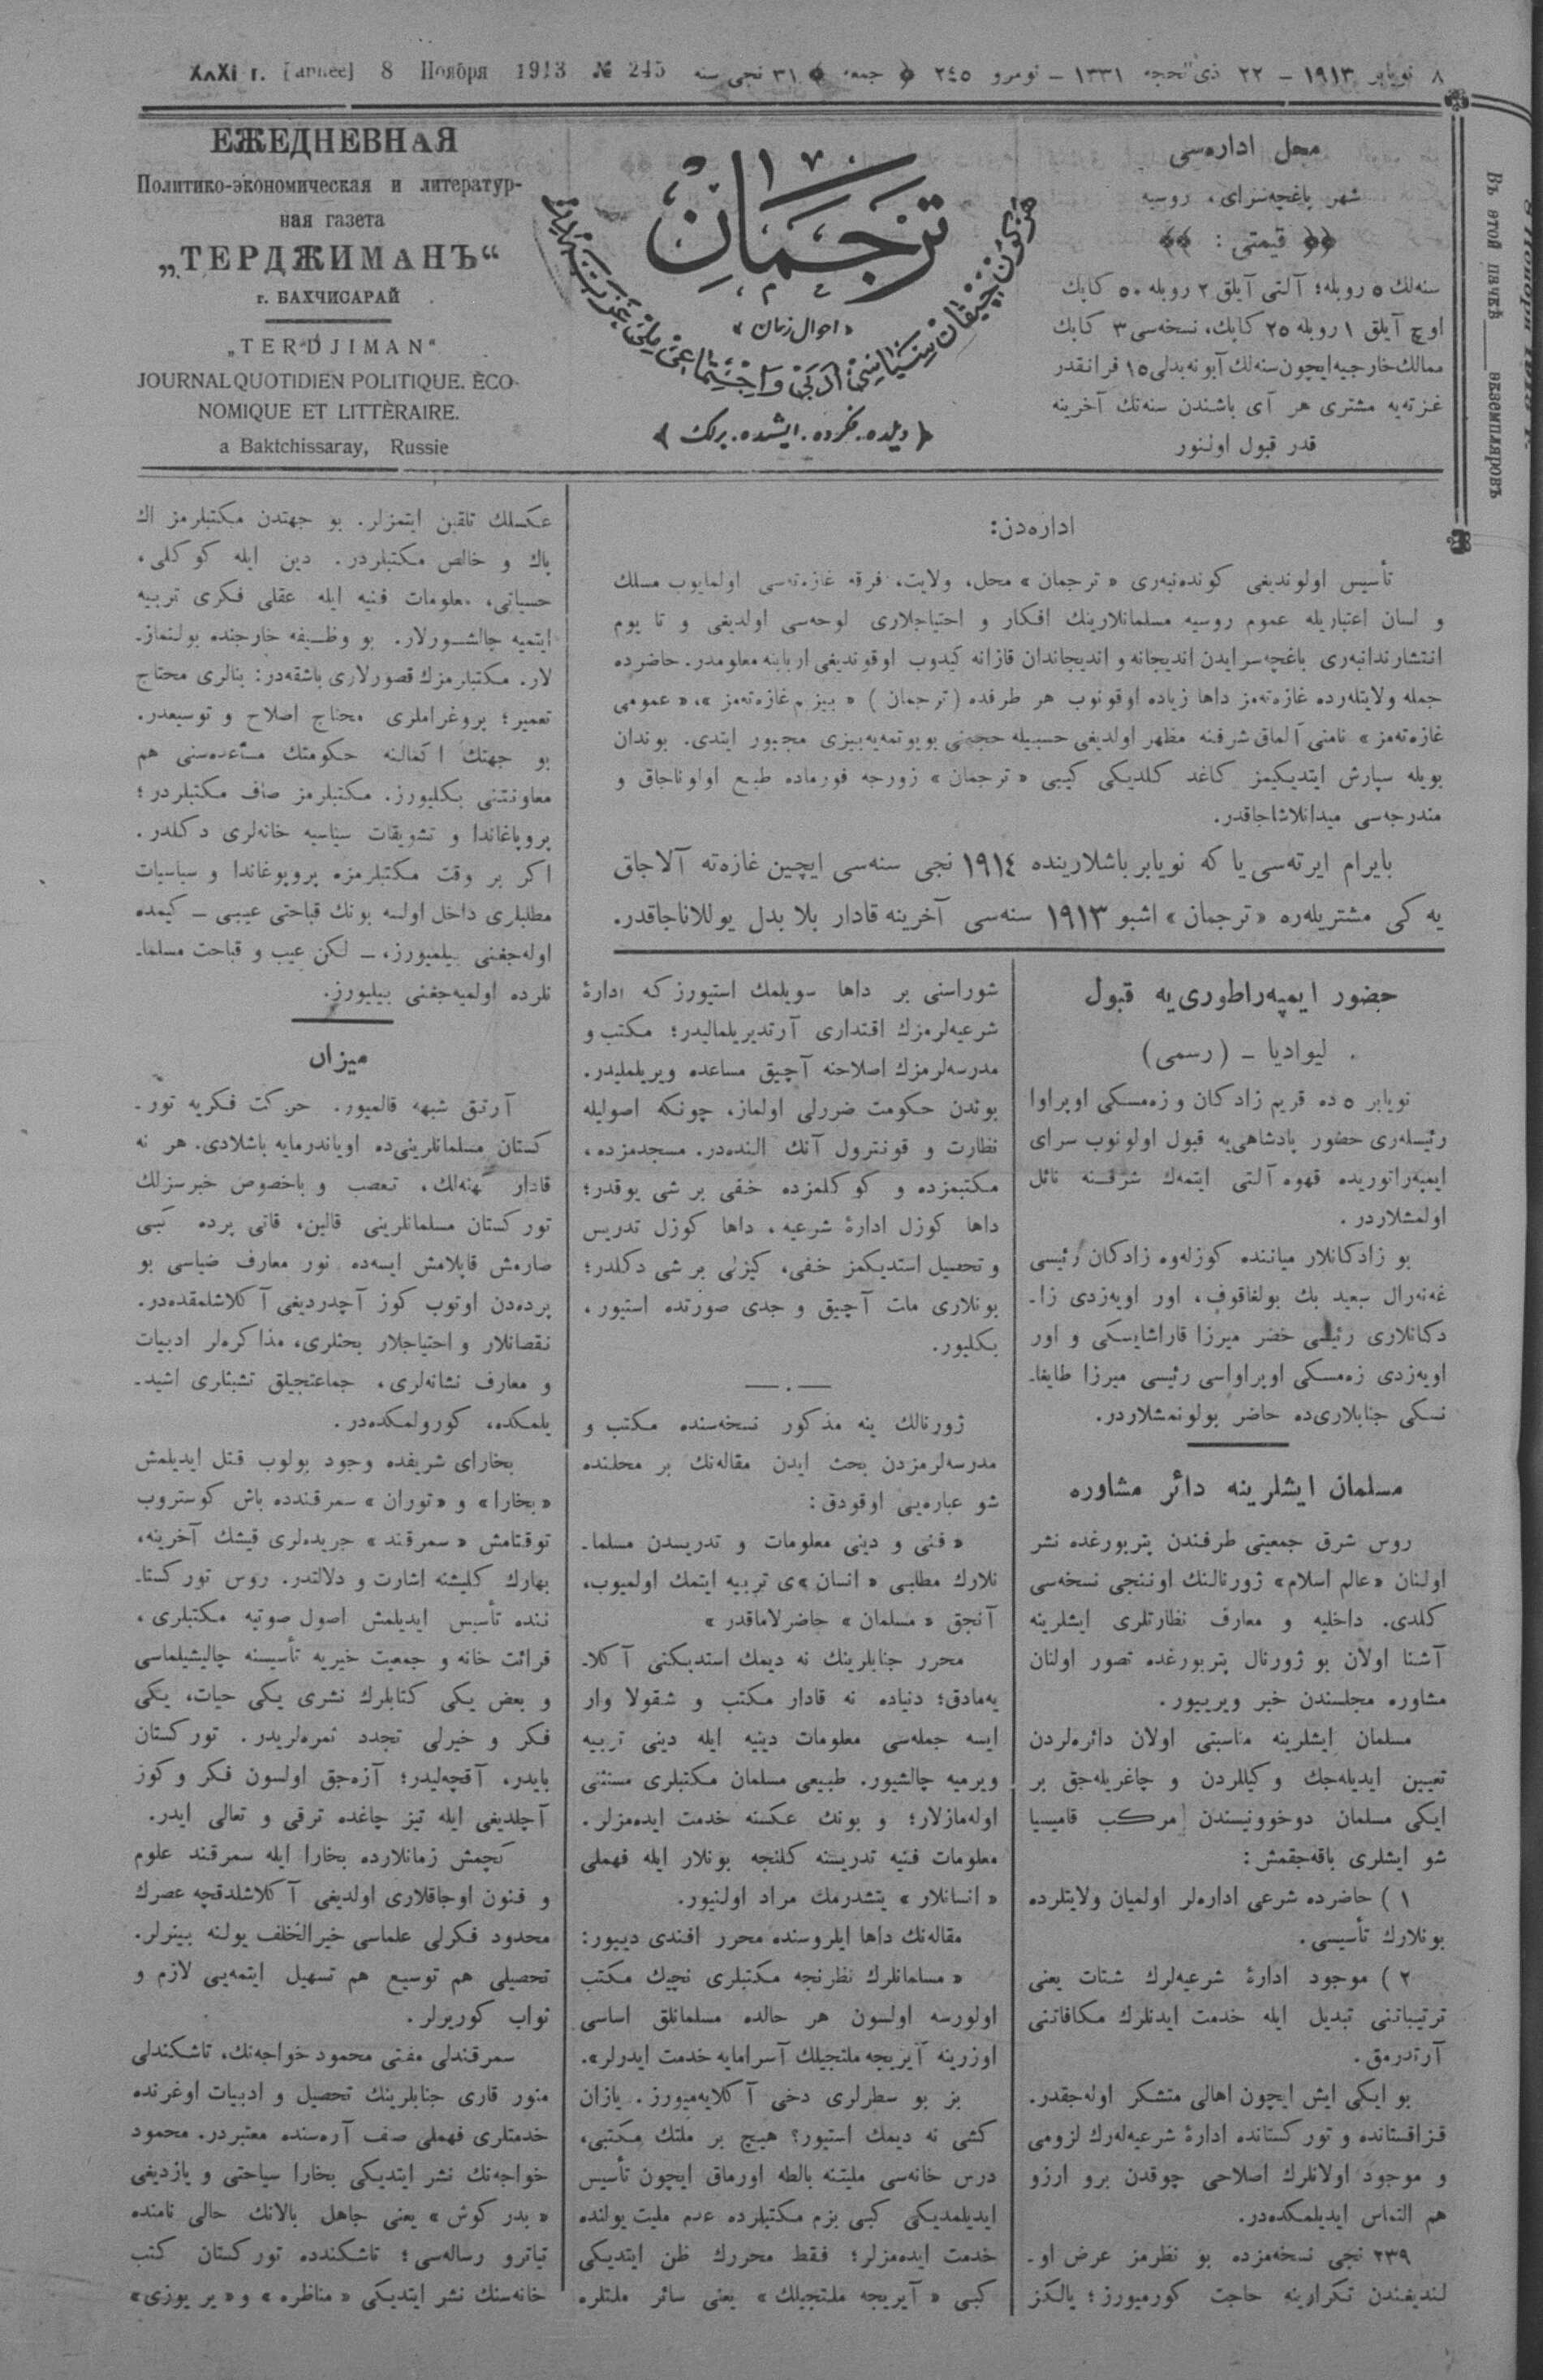 ٨ نویابر ١٩١٣ – ٢٢ ذی الحجه ١٣٣١ – نومرو ٢٤٥ ﴿ جمعه ﴾ ٣١ نجی سنه
8 Ноября 1913 № 245 [année] г.
محل اداره‌سی
شهر باغچه‌سرای، روسیه
﴿﴿ قیمتی : ﴾﴾
سنه‌لك ٥ روبله؛ آلتی آیلق ٢ روبله ٥٠ كاپك
اوچ آیلق ١ روبله ٢٥ كاپك، نسخه‌سی ٣ كاپك
ممالك خارجیه ایچون سنه‌لك آبونه بدلی ١٥ فرانقدر
غزته‌یه مشتری هر آی باشندن سنه‌نك آخرینه
قدر قبول اولنور
ترجمان
« احوال زمان »
﴿ دیلده. فكرده. ایشده. برلك ﴾
ЕЖЕДНЕВНАЯ
Политико-экономическая и литератур-
ная газета
„ТЕРДЖИМАНЪ“
г. БАХЧИСАРАЙ
„TERDJIMAN“
JOURNAL QUOTIDIEN POLITIQUE. ÈCO-
NOMIQUE ET LITTÈRAIRE.
a Baktchissaray, Russie
Въ этой пачкѣ ____ экземпляровъ
اداره‌دن:
تأسیس اولوندیغی كونده‌نبه‌ری « ترجمان » محل، ولایت، فرقه غازه‌ته‌سی اولمایوب مسلك
و لسان اعتباریله عموم روسیه مسلمانلارینك افكار و احتیاجلاری لوحه‌سی اولدیغی و تا یوم
انتشارندانبه‌ری باغچه‌سرایدن اندیجانه و اندیجاندان قازانه كیدوب اوقوندیغی اربابنه معلومدر. حاضرده
جمله ولایتلرده غازه‌ته‌مز داها زیاده اوقونوب هر طرفده (ترجمان) « بیزیم غازه‌ته‌مز »، « عمومی
غازه‌ته‌مز » نامنی آلماق شرفنه مظهر اولدیغی حسبیله حجمنی بویوتمه‌یه بیزی مجبور ایتدی. بوندان
بویله سپارش ایتدیكیمز كاغد كلدیكی كیبی « ترجمان » زورجه فورماده طبع اولوناجاق و
مندرجه‌سی میدانلاشاجاقدر.
بایرام ایرته‌سی یا كه نویابر باشلارینده ١٩١٤ نجی سنه‌سی ایچین غازه‌ته آلاجاق
یه كی مشتریله‌ره « ترجمان » اشبو ١٩١٣ سنه‌سی آخرینه قادار بلا بدل یوللاناجاقدر.
حضور ایمپه‌راطوری‌یه قبول
لیوادیا – (رسمی)
نویابر ٥ ده قریم زادكان و زه‌مسكی اوپراوا
رئیسله‌ری حضور پادشاهی‌یه قبول اولونوب سرای
ایمپه‌راتوریده قهوه آلتی ایتمه‌ك شرفنه نائل
اولمشلاردر.
بو زادكانلار میاننده كوزله‌وه زادكان رئیسی
غه‌نه‌رال سعید بك بولغاقوف، اور اویه‌زدی زا-
دكانلاری رئیسی خضر میرزا قاراشایسكی و اور
اویه‌زدی زه‌مسكی اوپراواسی رئیسی میرزا طایغا-
نسكی جنابلاری‌ده حاضر بولونمشلاردر.
مسلمان ایشلرینه دائر مشاوره
روس شرق جمعیتی طرفندن پتربورغده نشر
اولنان « عالم اسلام » ژورنالنك اوننجی نسخه‌سی
كلدی. داخلیه و معارف نظارتلری ایشلرینه
آشنا اولان بو ژورنال پتربورغده تصور اولنان
مشاوره مجلسندن خبر ویرییور.
مسلمان ایشلرینه مناسبتی اولان دائره‌لردن
تعیین ایدیله‌جك وكیللردن و چاغریله‌جق بر
ایكی مسلمان دوخوونیسندن مركب قامیسیا
شو ایشلری باقه‌جقمش :
١ ) حاضرده شرعی اداره‌لر اولمیان ولایتلرده
بونلارك تأسیسی.
٢ ) موجود ادارهٔ شرعیه‌لرك شتات یعنی
ترتیباتنی تبدیل ایله خدمت ایدنلرك مكافاتنی
آرتدرمق.
بو ایكی ایش ایچون اهالی متشكر اوله‌جقدر.
قزاقستانده و توركستانده ادارهٔ شرعیه‌له‌رك لزومی
و موجود اولانلرك اصلاحی چوقدن برو ارزو
هم التماس ایدیلمكده‌در.
٢٣٩ نجی نسخه‌مزده بو نظرمز عرض او-
لندیغندن تكرارینه حاجت كورمیورز؛ یالكز
شوراسنی بر داها سویلمك استیورز كه ادارهٔ
شرعیه‌لرمزك اقتداری آرتدیریلمالیدر؛ مكتب و
مدرسه‌لرمزك اصلاحنه آچیق مساعده ویریلملیدر.
بوندن حكومت ضررلی اولماز، چونكه اصولیله
نظارت و قونترول آنك النده‌در. مسجدمزده،
مكتبمزده و كوكلمزده خفی بر شی یوقدر؛
داها كوزل ادارهٔ شرعیه، داها كوزل تدریس
و تحصیل استدیكمز خفی، كیزلی بر شی دكلدر؛
بونلاری ملت آچیق و جدی صورتده استیور،
بكلیور.
ژورنالك ینه مذكور نسخه‌سنده مكتب و
مدرسه‌لرمزدن بحث ایدن مقاله‌نك بر محلنده
شو عباره‌یی اوقودق :
« فنی و دینی معلومات و تدریسدن مسلما-
نلارك مطلبی « انسان »ی تربیه ایتمك اولمیوب،
آنجق « مسلمان » حاضرلاماقدر »
محرر جنابلرینك نه دیمك استدیكنی آكلا-
یه‌مادق؛ دنیاده نه قادار مكتب و شقولا وار
ایسه جمله‌سی معلومات دینیه ایله دینی تربیه
ویرمیه چالشیور. طبیعی مسلمان مكتبلری مستثنی
اوله‌مازلار؛ و بونك عكسنه خدمت ایده‌مزلر.
معلومات فنیه تدریسنه كلنجه بونلار ایله فهملی
« انسانلار » یتشدرمك مراد اولنیور.
مقاله‌نك داها ایلروسنده محرر افندی دییور :
« مسلمانلرك نظرنجه مكتبلری نچیك مكتب
اولورسه اولسون هر حالده مسلمانلق اساسی
اوزرینه آیریجه ملتجیلك آسرامایه خدمت ایدرلر».
بز بو سطرلری دخی آكلایه‌میورز. یازان
كشی نه دیمك استیور؟ هیچ بر ملتك مكتبی،
درس خانه‌سی ملیتنه بالطه اورماق ایچون تأسیس
ایدیلمدیكی كبی بزم مكتبلرده عدم ملیت یولنده
خدمت ایده‌مزلر؛ فقط محررك ظن ایتدیكی
كبی « آیریجه ملتجیلك » یعنی سائر ملتلره
عكسلك تلقین ایتمزلر. بو جهتدن مكتبلرمز اك
پاك و خالص مكتبلردر. دین ایله كوكلی،
حسیاتی، معلومات فنیه ایله عقلی فكری تربیه
ایتمیه چالشورلار. بو وظیفه خارجنده بولنماز-
لار. مكتبلرمزك قصورلاری باشقه‌در: بنالری محتاج
تعمیر؛ پروغراملری محتاج اصلاح و توسیعدر.
بو جهتك اكمالنه حكومتك مساعده‌سنی هم
معاونتنی بكلیورز. مكتبلرمز صاف مكتبلردر؛
پروپاغاندا و تشویقات سیاسیه خانه‌لری دكلدر.
اكر بر وقت مكتبلرمزه پروپوغاندا و سیاسیات
مطلبلری داخل اولسه بونك قباحتی عیبی – كیمده
اوله‌جغنی بیلمیورز، – لكن عیب و قباحت مسلما-
نلرده اولمیه‌جغنی بیلیورز.
میزان
آرتق شبهه قالمیور. حركت فكریه تور-
كستان مسلمانلرینی‌ده اویاندرمایه باشلادی. هر نه
قادار كهنه‌لك، تعصب و باخصوص خبرسزلك
توركستان مسلمانلرینی قالین، قاتی پرده كبی
صارمش قاپلامش ایسه‌ده نور معارف ضیاسی بو
پرده‌دن اوتوپ كوز آچدردیغی آكلاشلمقده‌در.
نقصانلار و احتیاجلار بحثلری، مذاكره‌لر ادبیات
و معارف نشانه‌لری، جماعتجیلق تشبثلری اشید-
یلمكده، كورولمكده‌در.
بخارای شریفده وجود بولوب قتل ایدیلمش
« بخارا » و « توران » سمرقندده باش كوستروب
توقتامش « سمرقند » جریده‌لری قیشك آخرینه،
بهارك كلیشنه اشارت و دلالتدر. روس توركستا-
ننده تأسیس ایدیلمش اصول صوتیه مكتبلری،
قرائت خانه و جمعیت خیریه تأسیسنه چالیشیلماسی
و بعض یكی كتابلرك نشری یكی حیات، یكی
فكر و خیرلی تجدد ثمره‌لریدر. توركستان
بایدر، آقچه‌لیدر؛ آزه‌جق اولسون فكر و كوز
آچلدیغی ایله تیز چاغده ترقی و تعالی ایدر.
كچمش زمانلارده بخارا ایله سمرقند علوم
و فنون اوجاقلاری اولدیغی آكلاشلدقچه عصرك
محدود فكرلی علماسی خیر الخلف یولنه بینرلر.
تحصیلی هم توسیع هم تسهیل ایتمه‌یی لازم و
ثواب كوریرلر.
سمرقندلی مفتی محمود خواجه‌نك، تاشكندلی
منور قاری جنابلرینك تحصیل و ادبیات اوغرنده
خدمتلری فهملی صنف آره‌سنده معتبردر. محمود
خواجه‌نك نشر ایتدیكی بخارا سیاحتی و یازدیغی
« پدر كوش » یعنی جاهل بالانك حالی نامنده
تیاترو رساله‌سی؛ تاشكندده توركستان كتب
خانه‌سنك نشر ایتدیكی « مناظره » و « یر یوزی »